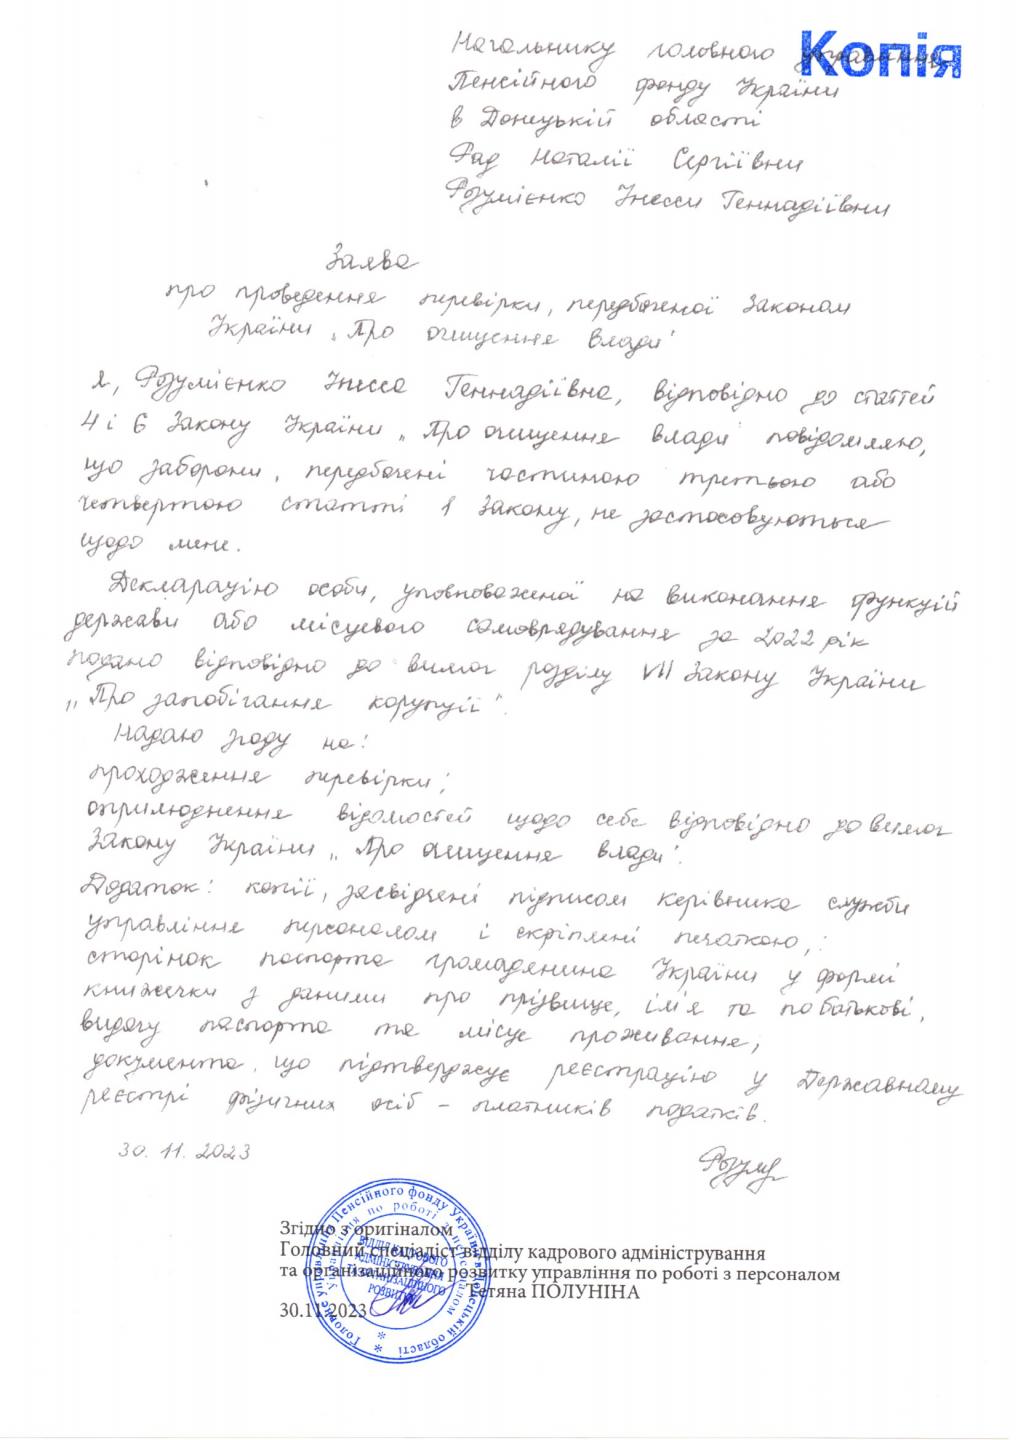 Копія
Начальнику головного управління
Пенсійного фонду України
в Донецькій області
Рад Наталії Сергіївни
Розумієнко Інесси Геннадіївни
Заява
про проведення перевірки, передбаченої Законом
України „Про очищення влади"
Я, Розумієнко Інесса Геннадіївна, відповідно до статтей
4 і 6 Закону України „Про очищення влади" повідомляю,
що заборони, передбачені частиною третьою або
четвертою статті 1 Закону, не застосовуються
щодо мене.
Декларацію особи, уповноваженої на виконання функцій
держави або місцевого самоврядування за 2022 рік
подано відповідно до вимог розділу VII Закону України
„Про запобігання корупції".
Надаю згоду на:
проходження перевірки;
оприлюднення відомостей щодо себе відповідно до вимог
Закону України „Про очищення влади".
Додаток: копії, засвідчені підписом керівника служби
управління персоналом і скріплені печаткою,:
сторінок паспорта громадянина України у формі
книжечки з даними про прізвище, ім'я та по батькові,
видачу паспорта та місце проживання;
документа, що підтверджує реєстрацію у Державному
реєстрі фізичних осіб – платників податків.
30.11.2023
Згідно з оригіналом
Головний спеціаліст відділу кадрового адміністрування
та організаційного розвитку управління по роботі з персоналом
Тетяна ПОЛУНІНА
30.11.2023
Головне управління Пенсійного фонду України в Донецькій області
Управління по роботі з персоналом
ВІДДІЛ КАДРОВОГО
АДМІНІСТРУВАННЯ
ТА ОРГАНІЗАЦІЙНОГО
РОЗВИТКУ